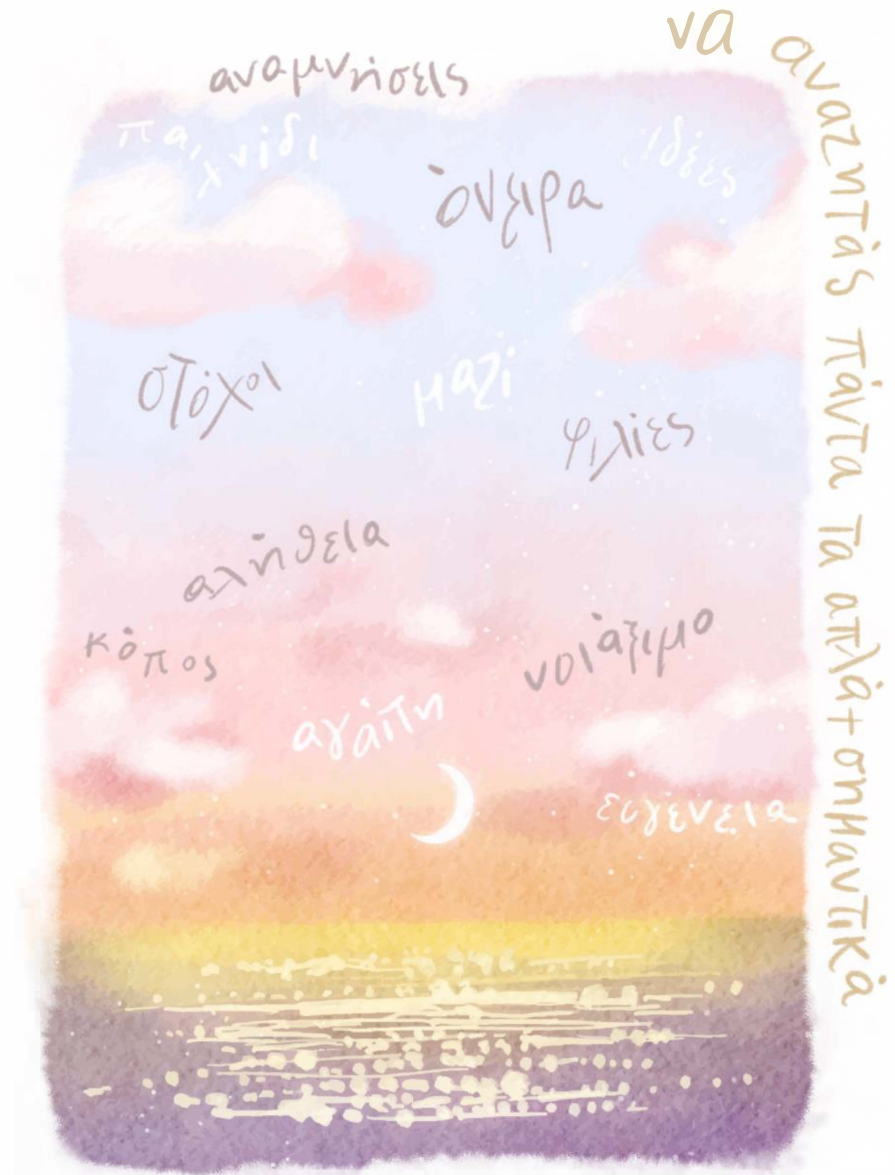 να αναζητάς πάντα τα απλά + σημαντικά
αναμνήσεις
παιχνίδι
ιδέες
όνειρα
στόχοι
μαζί
φιλίες
αλήθεια
κόπος
νοιάξιμο
αγάπη
ευγένεια